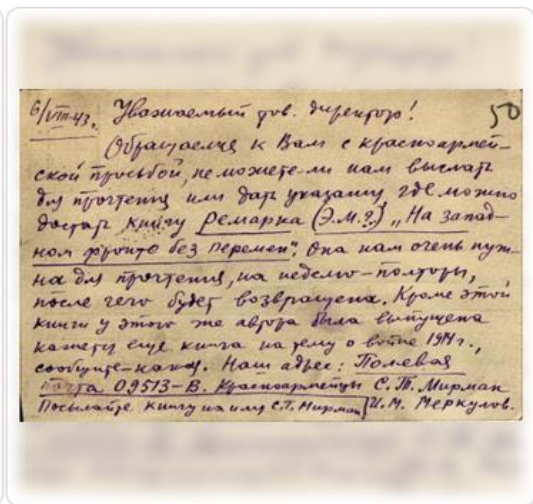 6/VIII-43. Уважаемый тов. директор! 50
Обращаемся к Вам с красноармей-
ской просьбой, не можете-ли нам выслать
для прочтения или дать указания, где можно
достать книгу Ремарка (Э.М.?) „На Запад-
ном фронте без перемен". Она нам очень нуж-
на для прочтения, на неделю-полторы,
после чего будет возвращена. Кроме этой
книги у этого же автора была выпущена
кажется еще книга на тему о войне 1914 г.,
сообщите-какая. Наш адрес: Полевая
почта 09513-В. Красноармейцы С.Т. Мирман
Посылайте книгу на имя С.Т. Мирман И.М. Меркулов.